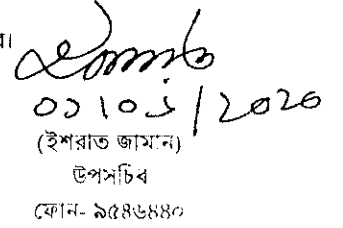 ০১/০১/2020
(ইশরাত জামান)
উপসচিব
ফোন- ৯৫৪৬৪৪০